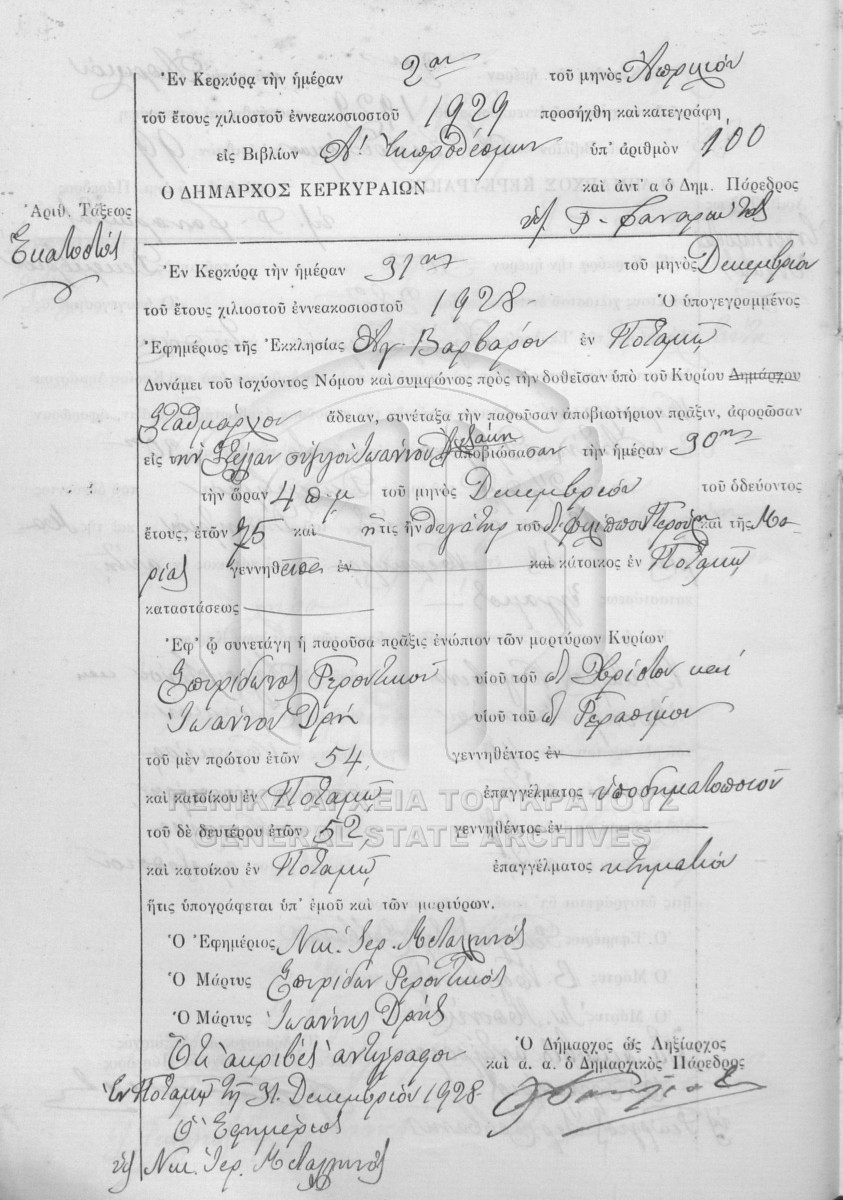 Ἐν Κερκύρᾳ τὴν ἡμέραν 2αν τοῦ μηνὸς Ἀπριλίου
τοῦ ἔτους χιλιοστοῦ ἐννεακοσιοστοῦ 1929 προσήχθη καὶ κατεγράφη
εἰς Βιβλίον Α' Ἐκπροθέσμων ὑπ' ἀριθμὸν 100
Ο ΔΗΜΑΡΧΟΣ ΚΕΡΚΥΡΑΙΩΝ καὶ ἀντ' α ὁ Δημ. Πάρεδρος
Ἀριθ. Τάξεως
Ἑκατοστός
Ἐν Κερκύρᾳ τὴν ἡμέραν 31ην τοῦ μηνὸς Δεκεμβρίου
τοῦ ἔτους χιλιοστοῦ ἐννεακοσιοστοῦ 1928 Ὁ ὑπογεγραμμένος
Ἐφημέριος τῆς Ἐκκλησίας Ἁγ. Βαρβάρου ἐν Ποταμῷ
Δυνάμει τοῦ ἰσχύοντος Νόμου καὶ συμφώνως πρὸς τὴν δοθεῖσαν ὑπὸ τοῦ Κυρίου Δημάρχου
Σταθμάρχου ἄδειαν, συνέταξα τὴν παροῦσαν ἀποβιωτήριον πρᾶξιν, ἀφορῶσαν
εἰς τὴν Στέλλαν σύζυγον Ἰωάννου ἀποβιώσασαν τὴν ἡμέραν 30ην
τὴν ὥραν 4 π.μ. τοῦ μηνὸς Δεκεμβρίου τοῦ ὁδεύοντος
ἔτους, ἐτῶν 75 καὶ ἥτις ἦν θυγάτηρ τοῦ Φιλίππου καὶ τῆς Μα-
ρίας γεννηθεῖσα ἐν καὶ κάτοικος ἐν Ποταμῷ
καταστάσεως
Ἐφ' ᾧ συνετάγη ἡ παροῦσα πρᾶξις ἐνώπιον τῶν μαρτύρων Κυρίων
Σπυρίδωνος Γεροντικοῦ υἱοῦ τοῦ Χρίστου καὶ
Ἰωάννου Δρῆ υἱοῦ τοῦ Γερασίμου
τοῦ μὲν πρώτου ἐτῶν 54 γεννηθέντος ἐν
καὶ κατοίκου ἐν Ποταμῷ ἐπαγγέλματος ὑποδηματοποιοῦ
ΓΕΝΙΚΑ ΑΡΧΕΙΑ ΤΟΥ ΚΡΑΤΟΥΣ
τοῦ δὲ δευτέρου ἐτῶν 52 γεννηθέντος ἐν
GENERAL STATE ARCHIVES
καὶ κατοίκου ἐν Ποταμῷ ἐπαγγέλματος κτηματίου
ἥτις ὑπογράφεται ὑπ' ἐμοῦ καὶ τῶν μαρτύρων.
Ὁ Ἐφημέριος Νικ. Ἱερ. Μεταλληνός
Ὁ Μάρτυς Σπυρίδων Γεροντικός
Ὁ Μάρτυς Ἰωάννης Δρῆς
Ὁ Δήμαρχος ὡς Ληξίαρχος
Ὅτι ἀκριβὲς ἀντίγραφον
καὶ α. α. ὁ Δημαρχικὸς Πάρεδρος
Ἐν Ποταμῷ τῇ 31 Δεκεμβρίου 1928
Ὁ Ἐφημέριος
Νικ. Ἱερ. Μεταλληνός